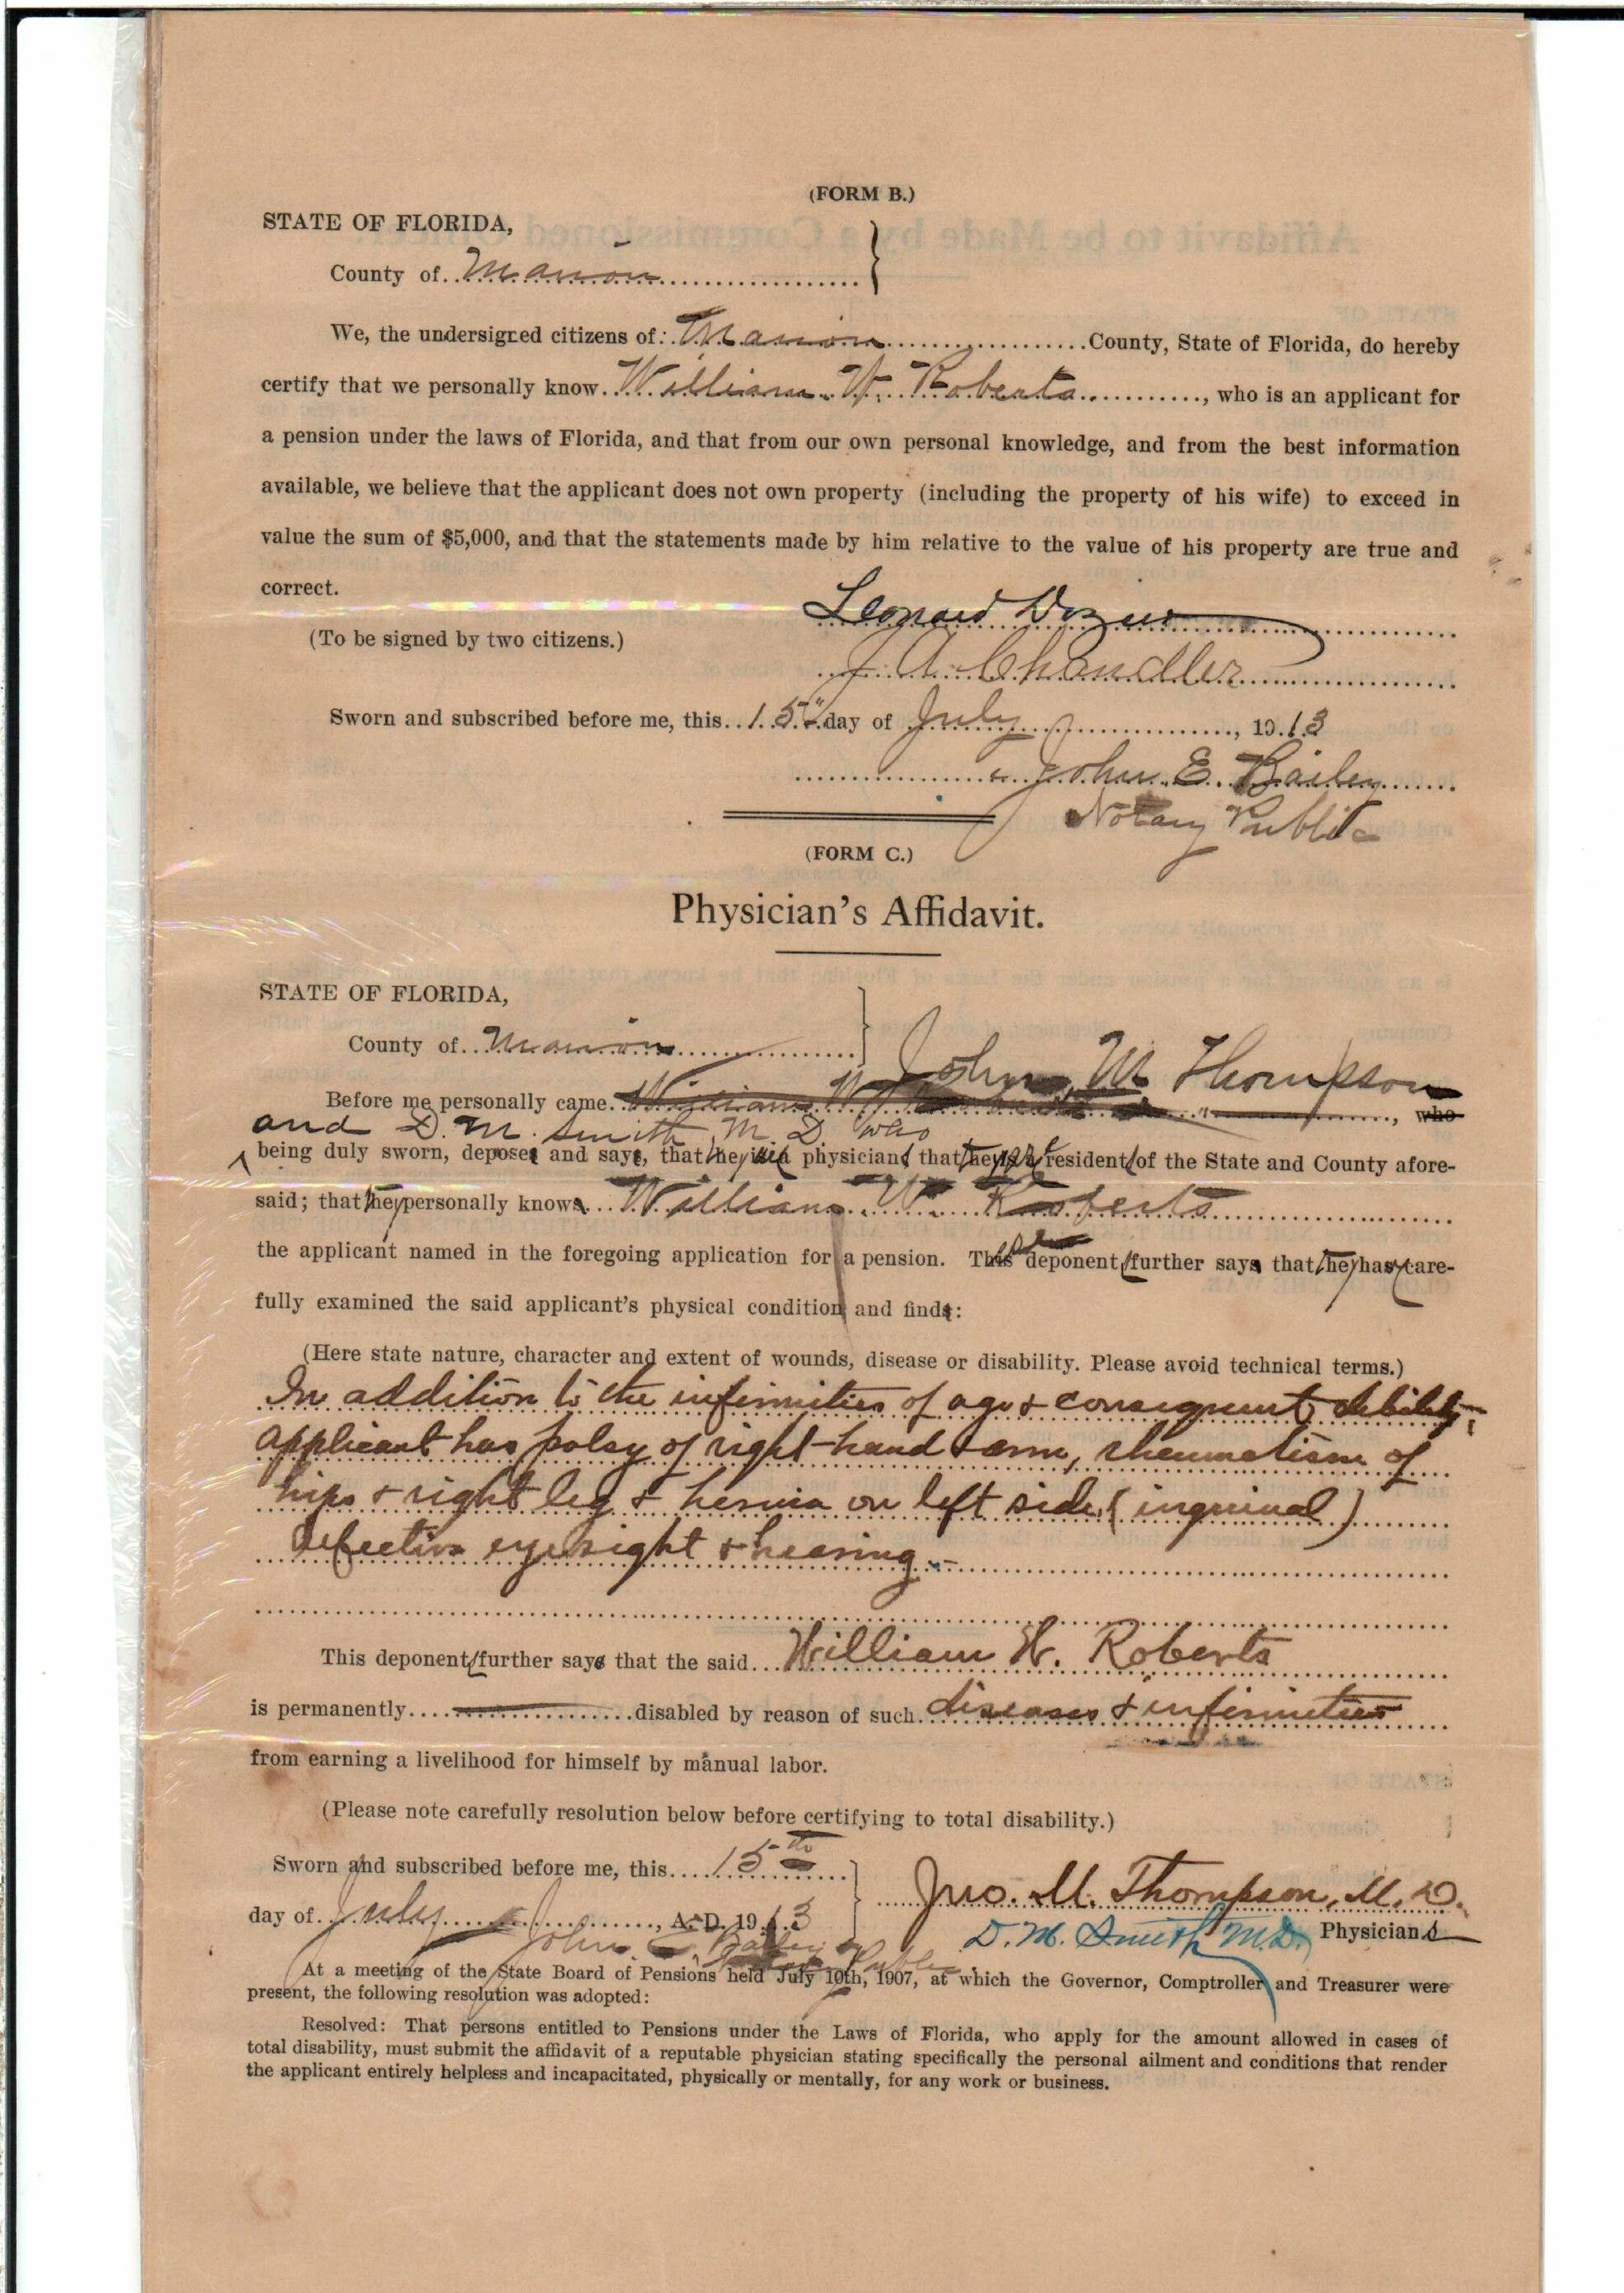 (FORM B.)
STATE OF FLORIDA,
County of Marion
We, the undersigned citizens of: Marion County, State of Florida, do hereby
certify that we personally know William W. Roberts, who is an applicant for
a pension under the laws of Florida, and that from our own personal knowledge, and from the best information
available, we believe that the applicant does not own property (including the property of his wife) to exceed in
value the sum of $5,000, and that the statements made by him relative to the value of his property are true and
correct.
Leonard Dozier
(To be signed by two citizens.)
J. A. Chandler
Sworn and subscribed before me, this 15" day of July, 1913
John E. Bailey
Notary Public
(FORM C.)
Physician's Affidavit.
STATE OF FLORIDA,
County of Marion
John M Thompson
Before me personally came William W. , who
and D. M. Smith, M. D. who
being duly sworn, deposes and says, that they are physicians that they are residents of the State and County afore-
said; that they personally know William W. Roberts
the applicant named in the foregoing application for a pension. These deponents further say that they have care-
fully examined the said applicant's physical condition and find:
(Here state nature, character and extent of wounds, disease or disability. Please avoid technical terms.)
In addition to the infirmities of age & consequent debility,
applicant has palsy of right hand & arm, rheumatism of
hips & right leg & hernia on left side (inguinal)
defective eyesight & hearing.
This deponents further say that the said William W. Roberts
is permanently disabled by reason of such diseases & infirmities
from earning a livelihood for himself by manual labor.
(Please note carefully resolution below before certifying to total disability.)
Sworn and subscribed before me, this 15th
Jno. M. Thompson, M.D.
day of July, A. D. 1913
D. M. Smith M.D. Physicians
John E. Bailey
Public
At a meeting of the State Board of Pensions held July 10th, 1907, at which the Governor, Comptroller and Treasurer were
present, the following resolution was adopted:
Resolved: That persons entitled to Pensions under the Laws of Florida, who apply for the amount allowed in cases of
total disability, must submit the affidavit of a reputable physician stating specifically the personal ailment and conditions that render
the applicant entirely helpless and incapacitated, physically or mentally, for any work or business.